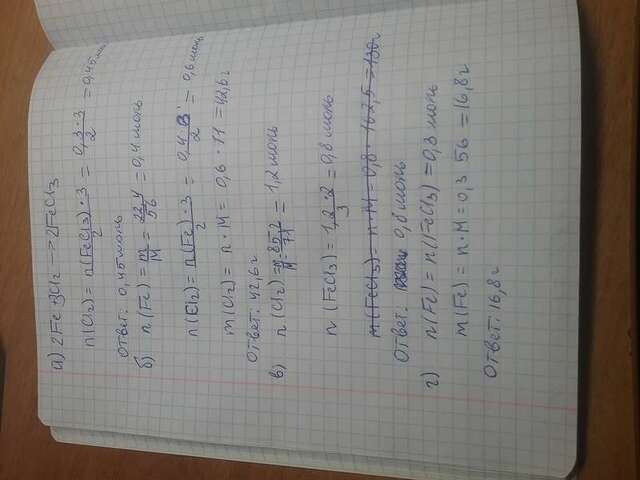 а) 2Fe+3Cl2 → 2FeCl3
n(Cl2) = n(FeCl3)·3/2 = 0,3·3/2 = 0,45 моль
Ответ: 0,45 моль
б) n(Fe) = m/M = 22,4/56 = 0,4 моль
n(Cl2) = n(Fe)·3/2 = 0,4·3/2 = 0,6 моль
m(Cl2) = n·M = 0,6·71 = 42,6 г
Ответ: 42,6 г
в) n(Cl2) = m/M = 85,2/71 = 1,2 моль
n(FeCl3) = 1,2·2/3 = 0,8 моль
m(FeCl3) = n·M = 0,8·162,5 = 130 г
Ответ: 0,8 моль
г) n(Fe) = n(FeCl3) = 0,3 моль
m(Fe) = n·M = 0,3 56 = 16,8 г
Ответ: 16,8 г